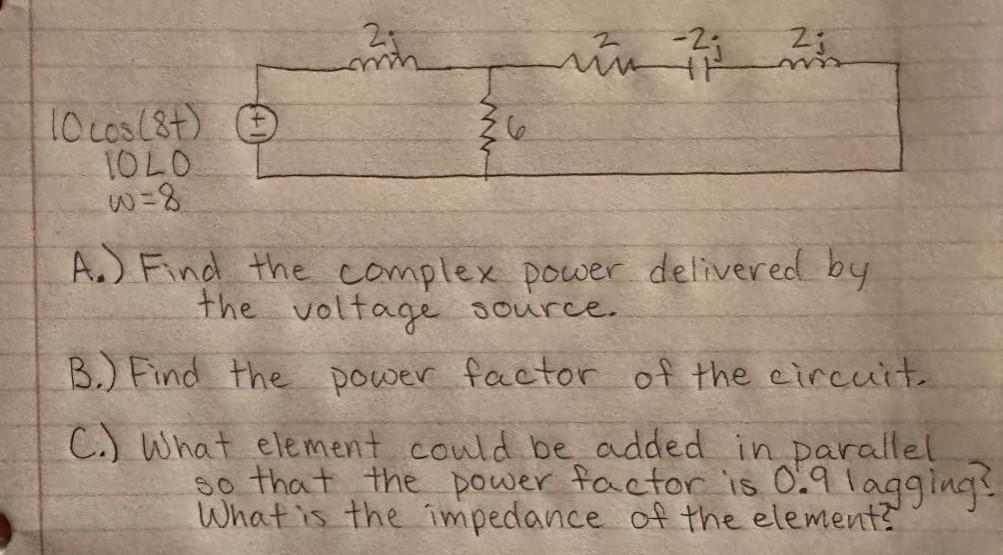 2j 2 -2j 2j
10cos(8t) + - 6
10∠0
w=8
A.) Find the complex power delivered by
the voltage source.
B.) Find the power factor of the circuit.
C.) What element could be added in parallel
so that the power factor is 0.9 lagging?
What is the impedance of the element?